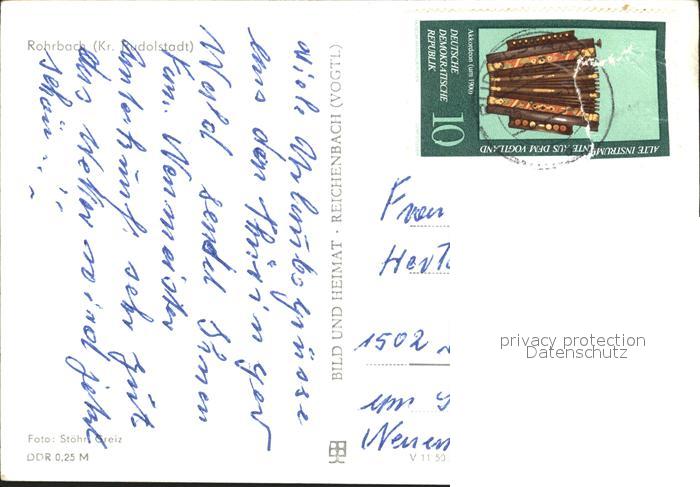 Rohrbach (Kr. Rudolstadt)
viele Urlaubsgrüsse
aus den Thüringer
Wald sendet Ihnen
Fam. Neumeister
Unterkunft sehr gut
das Wetter wird jetzt
schön...
Foto: Stöhr, Greiz
DDR 0,25 M
BILD UND HEIMAT · REICHENBACH (VOGTL)
V 11 50
DEUTSCHE
DEMOKRATISCHE
REPUBLIK
Akkordeon (um 1900)
10
ALTE INSTRUMENTE AUS DEM VOGTLAND
Frau
Hert
1502
privacy protection
Datenschutz